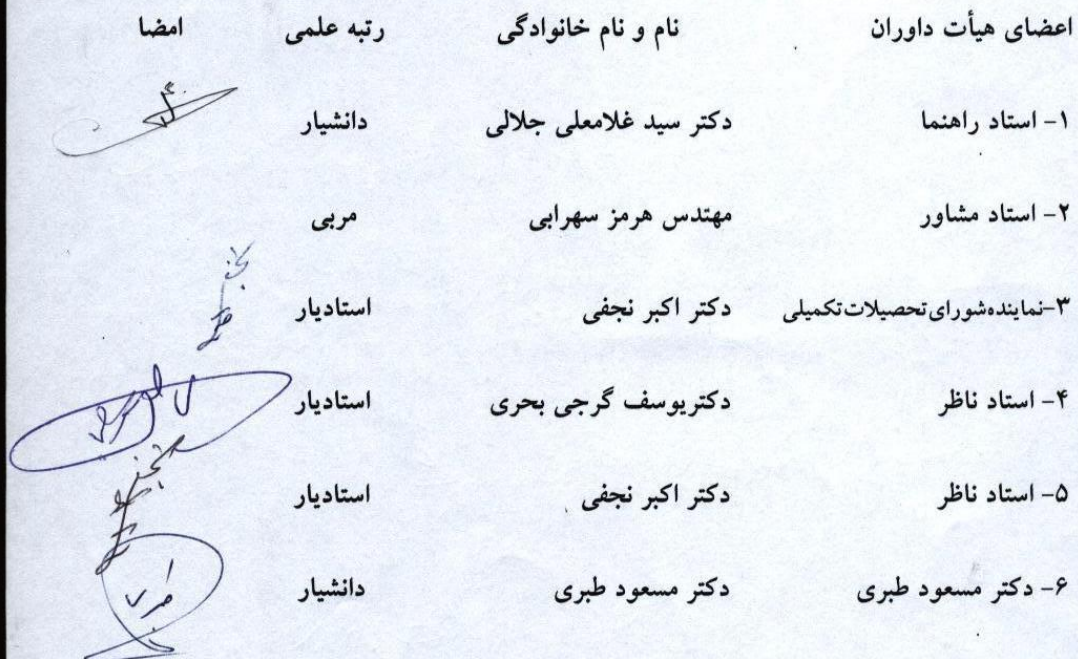 اعضای هیأت داوران نام و نام خانوادگی رتبه علمی امضا
۱- استاد راهنما دکتر سید غلامعلی جلالی دانشیار
۲- استاد مشاور مهتدس هرمز سهرابی مربی
۳-نماینده‌شورای‌تحصیلات‌تکمیلی دکتر اکبر نجفی استادیار
۴- استاد ناظر دکتریوسف گرجی بحری استادیار
۵- استاد ناظر دکتر اکبر نجفی استادیار
۶- دکتر مسعود طبری دکتر مسعود طبری دانشیار